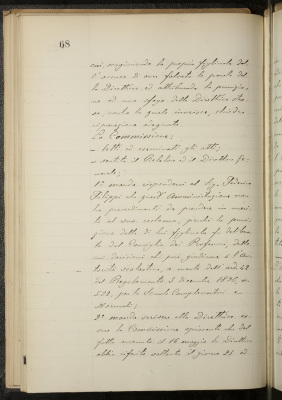 68
cui, magnificando la propria figliuola del-
l'accusa di aver falsato le parole del
la Direttrice, ed attribuendo la punizio-
ne ad uno sfogo della Direttrice stes-
sa, contro la quale inveisce, chiede
riparazione adeguata
La Commissione;
- letti ed esaminati gli atti;
- sentito il Relatore ed il Direttore ge-
nerale;
1º manda rispondersi al Sig. Federico
Filippi che quest'Amministrazione non ha
provvedimenti da prendere in meri-
to al suo reclamo, perchè la puni-
zione della di lui figliuola fu delibera-
ta dal Consiglio dei Professori, delle
cui decisioni può giudicare l'Au-
torità scolastica, a mente dell'art. 42
del Regolamento 3 dicembre 1896, n.
592, per le Scuole Complementari e
Normali;
2º manda scrivere alla Direttrice es-
sere la Commissione spiacente che del
fatto avvenuto il 16 maggio la Direttrice
abbia riferito soltanto il giorno 21 ed